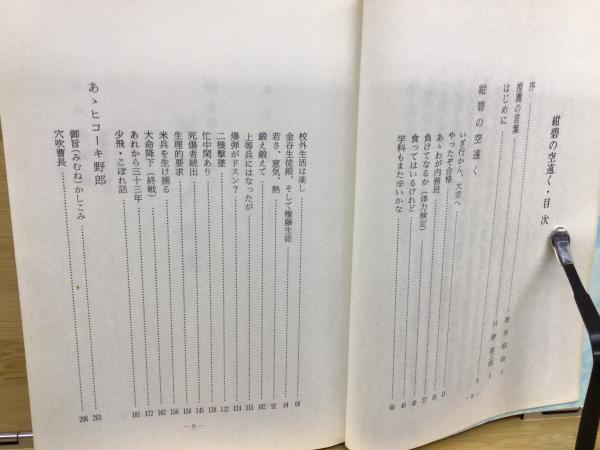 紺碧の空遠く・目次
序
推薦の言葉
はじめに
紺碧の空遠く
いざ行かん、大空へ
やったぞ合格
あゝわが内務班 28
負けてなるか（体力検定） 37
食ってはいるけれど 40
学科もまた辛いかな 60
—8—
校外生活は楽し 68
金谷生徒殿、そして権藤生徒 84
若さ、意気、熱 92
鍛え鍛えて 102
上等兵にはなったが 115
爆弾がドスン？ 124
二機撃墜 132
忙中閑あり 138
死傷者続出 145
生理的要求 150
米兵を生け捕る 156
大命降下（終戦） 162
あれから三十三年 172
少飛・こぼれ話 181
あゝヒコーキ野郎
御旨（みむね）かしこみ 203
穴吹曹長 206
—9—